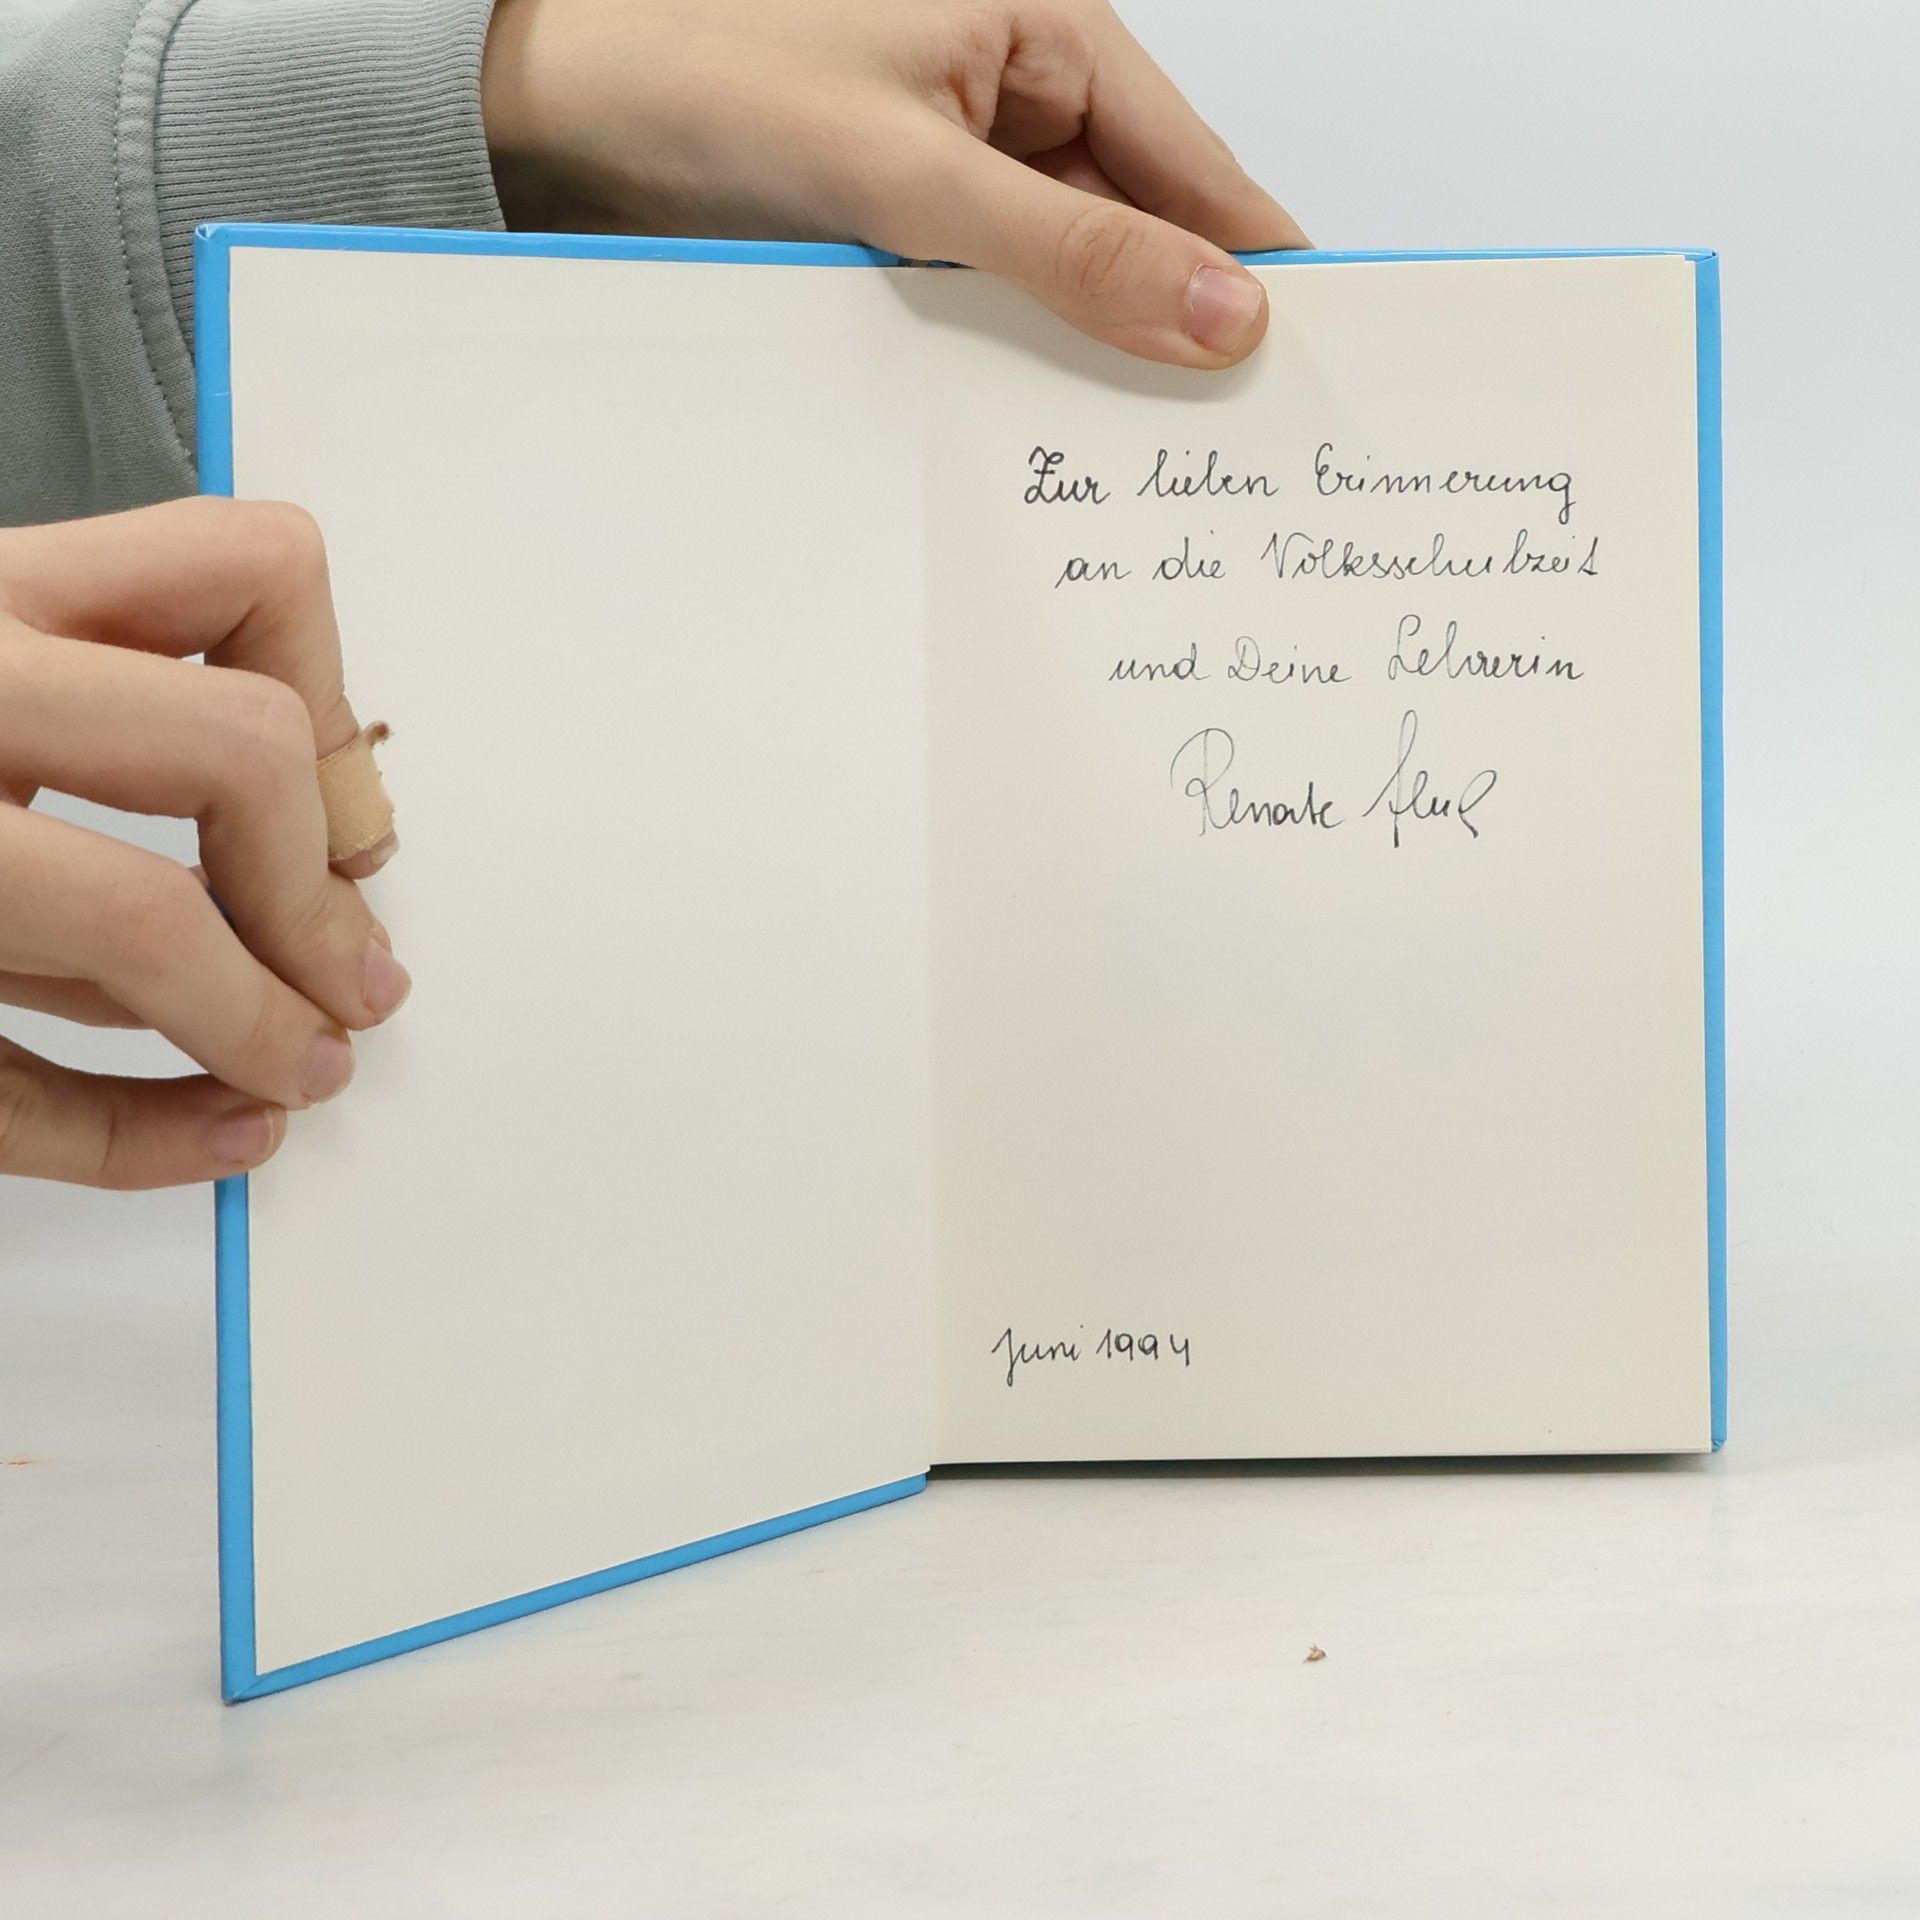 Zur lieben Erinnerung
an die Volksschulzeit
und Deine Lehrerin
Renate
Juni 1994